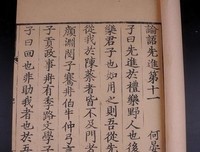 論語先進第十一
何晏
子曰先進於禮樂野人也後
樂君子也如用之則吾從先
從我於陳蔡者皆不及門者
顏淵閔子騫冉伯牛仲弓言
子貢政事冉有季路文學子
子曰回也非助我者也於吾